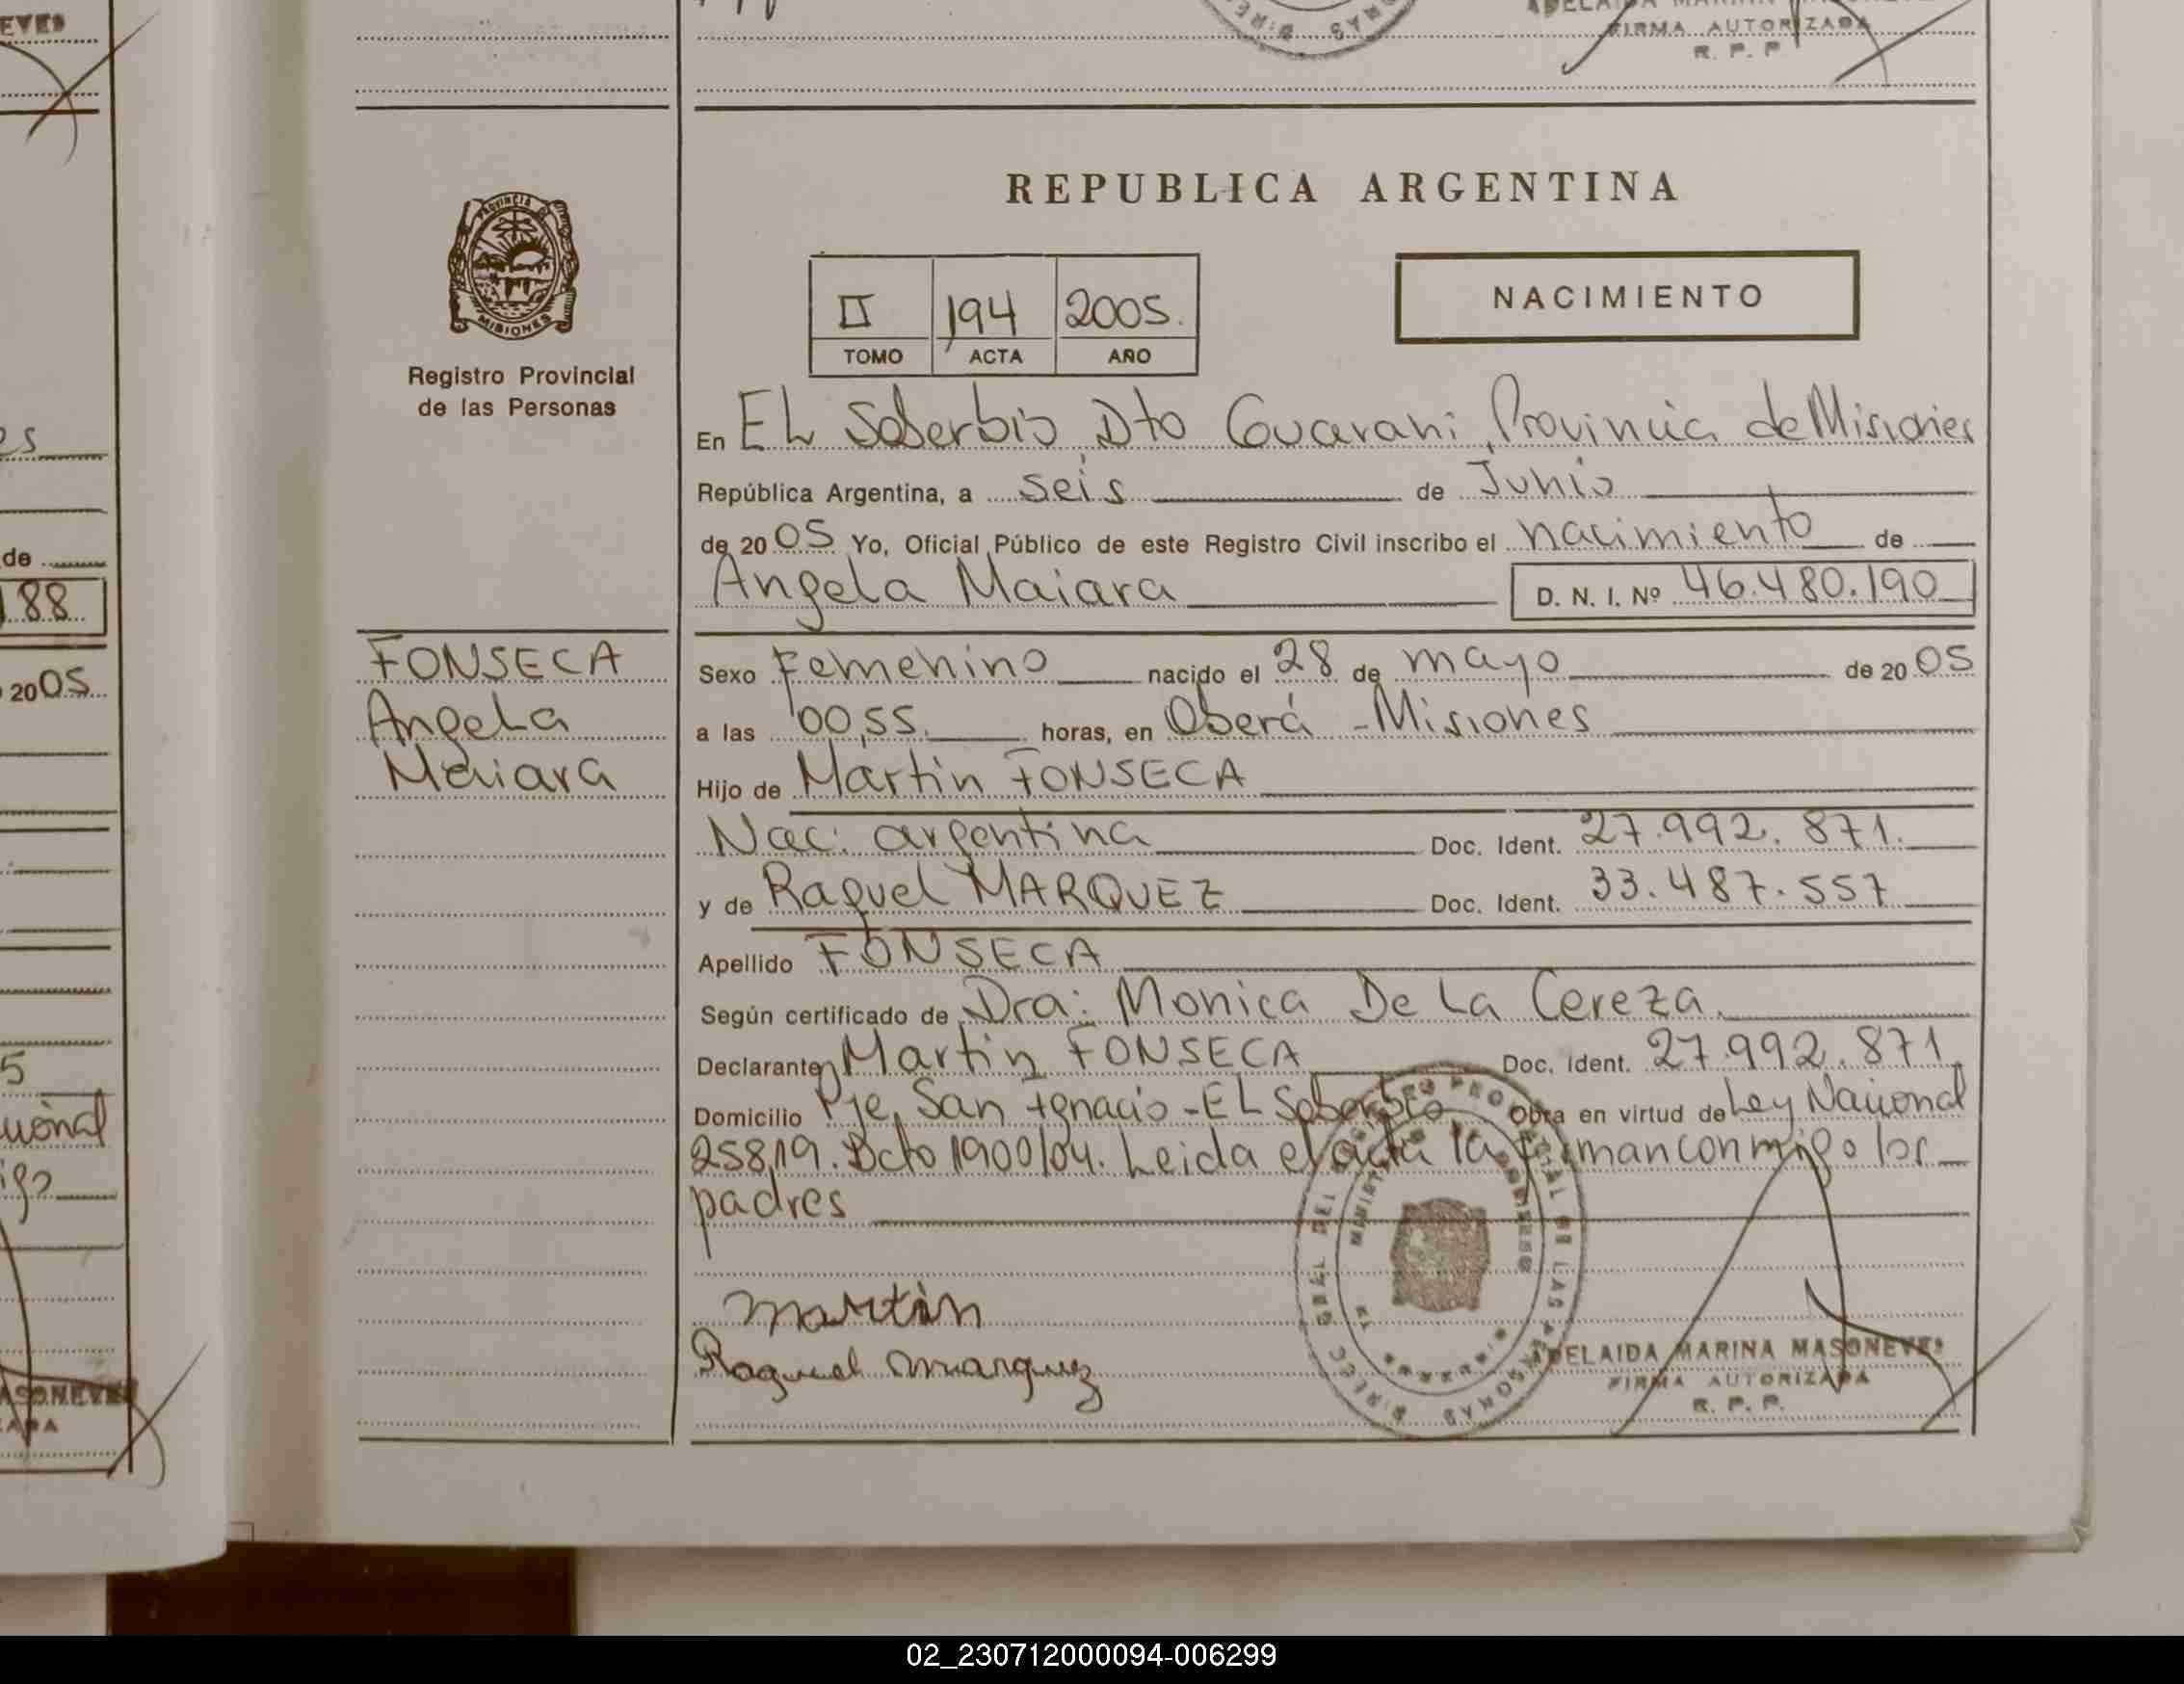 EVES
FIRMA AUTORIZADA
R. P. P
es
de
188
2005
5
cional
igo
MASONEVES
ZADA
PROVINCIA DE
MISIONES
Registro Provincial
de las Personas
REPUBLICA ARGENTINA
II 194 2005.
TOMO ACTA AÑO
NACIMIENTO
En EL Soberbio Dto Guarani Provincia de Misiones
República Argentina, a seis de Junio
de 2005 Yo, Oficial Público de este Registro Civil inscribo el nacimiento de
Angela Maiara D. N. I. Nº 46.480.190
FONSECA
Angela
Maiara
Sexo Femenino nacido el 28 de mayo de 2005
a las 00,55. horas, en Oberá - Misiones
Hijo de Martin FONSECA
Nac: argentina Doc. Ident. 27.992.871.
y de Raquel MARQUEZ Doc. Ident. 33.487.557
Apellido FONSECA
Según certificado de Dra: Monica De La Cereza.
Declarante Martin FONSECA Doc. Ident. 27.992.871
Domicilio Pje. San Ignacio - EL Soberbio Obra en virtud de Ley Nacional
25819. Dcto 1900/04. Leida el acta la firman conmigo los
padres
martin
Raquel marquez
ADELAIDA MARINA MASONEVES
FIRMA AUTORIZADA
R. P. P.
02_230712000094-006299